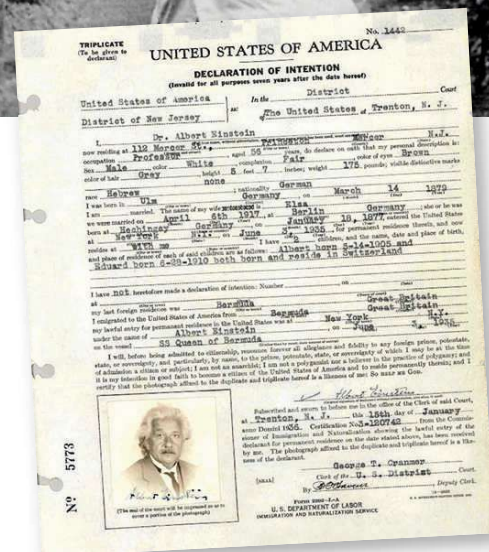 No. 1442
TRIPLICATE
(To be given to
declarant)
UNITED STATES OF AMERICA
DECLARATION OF INTENTION
(Invalid for all purposes seven years after the date hereof)
United States of America In the District Court
District of New Jersey ss: of The United States at Trenton, N. J.
I, Dr. Albert Einstein
now residing at 112 Mercer St., Princeton Mercer N.J.
occupation Professor, aged 56 years, do declare on oath that my personal description is:
Sex Male color White complexion Fair color of eyes Brown
color of hair Grey height 5 feet 7 inches; weight 175 pounds; visible distinctive marks
none
race Hebrew ; nationality German
I was born in Ulm Germany on March 14 1879
I am married. The name of my wife is Elsa
we were married on April 6th 1917, at Berlin Germany ; she or he was
born at Hechingen Germany on January 18, 1877, entered the United States
at New York N.Y. on June 3 1935, for permanent residence therein, and now
resides at With me I have 2 children, and the name, date and place of birth,
and place of residence of each of said children are as follows: Albert born 5-14-1905 and
Eduard born 6-28-1910 both born and reside in Switzerland
I have not heretofore made a declaration of intention: Number on
my last foreign residence was Bermuda Great Britain
I emigrated to the United States of America from Bermuda Great Britain
my lawful entry for permanent residence in the United States was at New York N.Y.
under the name of Albert Einstein on June 3, 1935
on the vessel SS Queen of Bermuda
I will, before being admitted to citizenship, renounce forever all allegiance and fidelity to any foreign prince, potentate,
state, or sovereignty, and particularly, by name, to the prince, potentate, state, or sovereignty of which I may be at the time
of admission a citizen or subject; I am not an anarchist; I am not a polygamist nor a believer in the practice of polygamy; and
it is my intention in good faith to become a citizen of the United States of America and to reside permanently therein; and I
certify that the photograph affixed to the duplicate and triplicate hereof is a likeness of me: So help me God.
Albert Einstein
Subscribed and sworn to before me in the office of the Clerk of said Court,
at Trenton, N. J. this 15th day of January
anno Domini 1936. Certification No 3-120742 from the Commis-
sioner of Immigration and Naturalization showing the lawful entry of the
declarant for permanent residence on the date stated above, has been received
by me. The photograph affixed to the duplicate and triplicate hereof is a like-
ness of the declarant.
George T. Cranmer
[SEAL] Clerk of the U. S. District Court.
By Deputy Clerk.
Form 2202-L-A
U. S. DEPARTMENT OF LABOR
IMMIGRATION AND NATURALIZATION SERVICE
No 5773
Albert Einstein
(The seal of the court will be impressed so as to
cover a portion of the photograph)